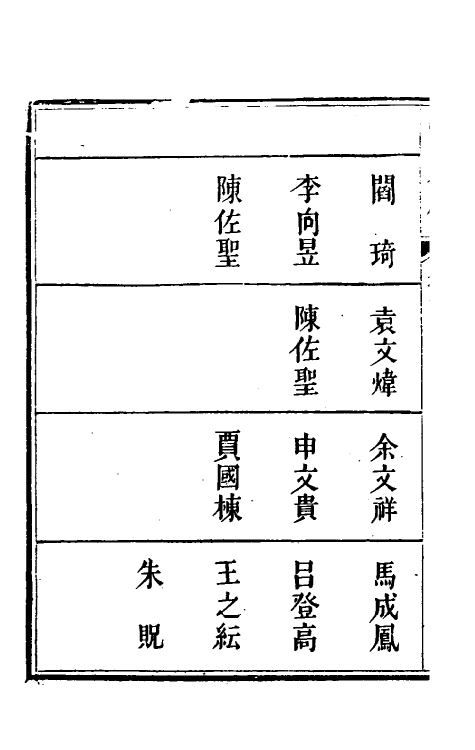 閻琦
李向昱
陳佐聖
袁文煒
陳佐聖
余文祥
申文貴
賈國棟
馬成鳳
呂登高
王之紜
朱貺